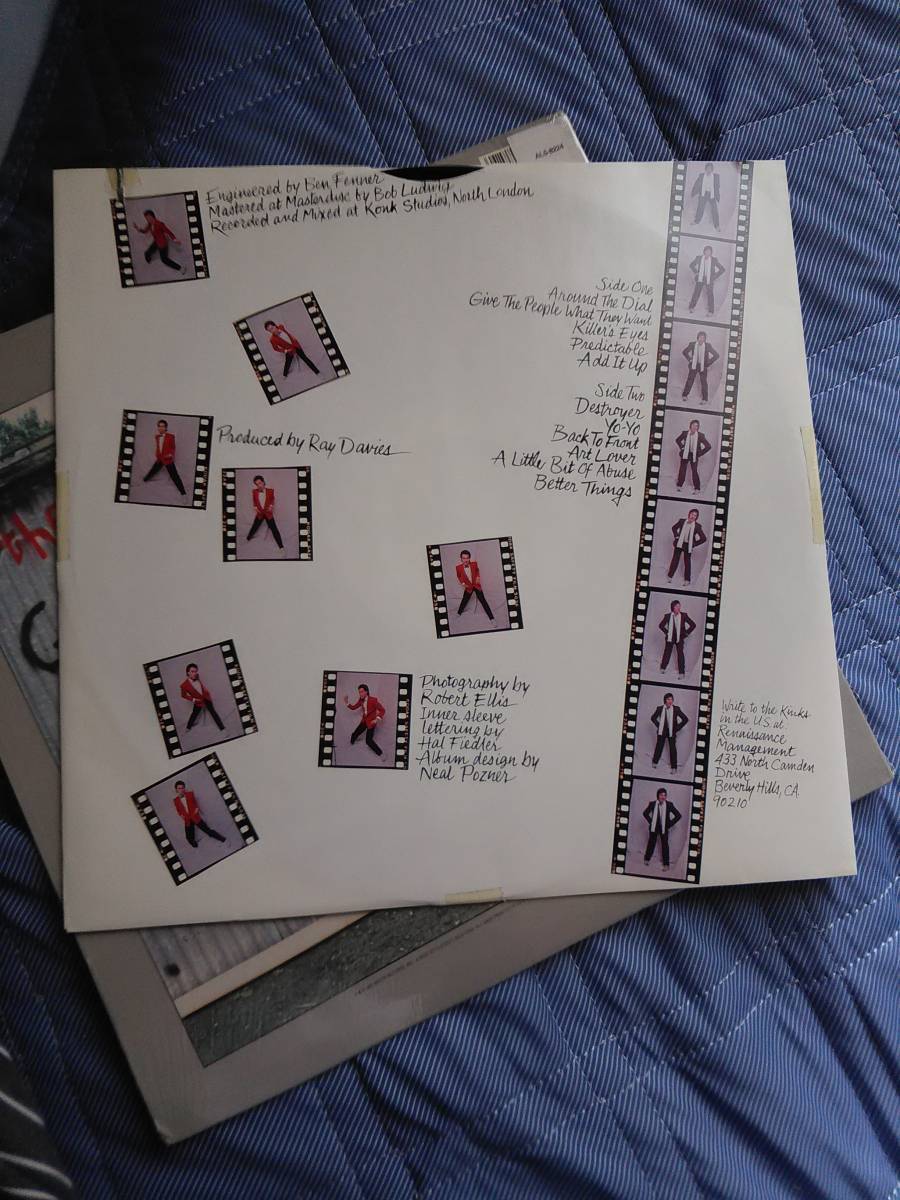 Engineered by Ben Fenner
Mastered at Masterdisc by Bob Ludwig
Recorded and Mixed at Konk Studios, North London
Side One
Around The Dial
Give The People What They Want
Killer's Eyes
Predictable
Add It Up
Side Two
Destroyer
Yo-Yo
Back To Front
Art Lover
A Little Bit Of Abuse
Better Things
Produced by Ray Davies
Photography by
Robert Ellis
Inner sleeve
lettering by
Hal Fiedler
Album design by
Neal Pozner
Write to the Kinks
in the U.S. at
Rennissance
Management
433 North Camden
Drive
Beverly Hills, CA
90210